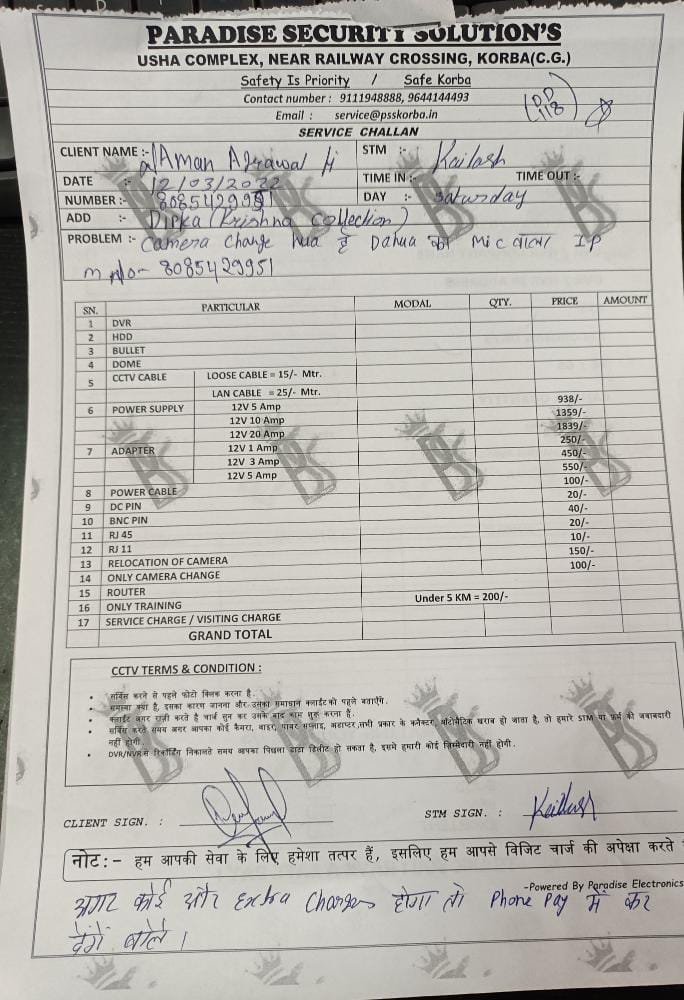 PARADISE SECURITY SOLUTION'S
USHA COMPLEX, NEAR RAILWAY CROSSING, KORBA(C.G.)
Safety Is Priority / Safe Korba
Contact number : 9111948888, 9644144493
Email : service@psskorba.in
SERVICE CHALLAN
CLIENT NAME :- Aman Agrawal Ji STM :- Kailash
DATE :- 12/03/2022 TIME IN :- TIME OUT :-
NUMBER :- 8085429951 DAY :- Saturday
ADD :- Dipka (Krishna Collection)
PROBLEM :- Camera Change hua है Dahua का Mic वाला IP
m No- 8085429951
SN. PARTICULAR MODAL QTY. PRICE AMOUNT
1 DVR
2 HDD
3 BULLET
4 DOME
5 CCTV CABLE LOOSE CABLE = 15/- Mtr.
LAN CABLE = 25/- Mtr.
6 POWER SUPPLY 12V 5 Amp 938/-
12V 10 Amp 1359/-
12V 20 Amp 1839/-
7 ADAPTER 12V 1 Amp 250/-
12V 3 Amp 450/-
12V 5 Amp 550/-
8 POWER CABLE 100/-
9 DC PIN 20/-
10 BNC PIN 40/-
11 RJ 45 20/-
12 RJ 11 10/-
13 RELOCATION OF CAMERA 150/-
14 ONLY CAMERA CHANGE 100/-
15 ROUTER
16 ONLY TRAINING Under 5 KM = 200/-
17 SERVICE CHARGE / VISITING CHARGE
GRAND TOTAL
CCTV TERMS & CONDITION :
• सर्विस करने से पहले फोटो क्लिक करना है.
• समस्या क्या है, इसका कारण जानना और उसका समाधान क्लाईंट को पहले बताएँगे.
• क्लाईंट अगर राज़ी करते है चार्ज सुन कर उसके बाद काम शुरू करना है.
• सर्विस करते समय अगर आपका कोई कैमरा, वायर, पावर सप्लाइ, अडाप्टर,सभी प्रकार के कनैक्टर, ऑटोमैटिक खराब हो जाता है, तो हमारे STM या फ़र्म की जवाबदारी
नहीं होगी.
• DVR/NVR से रिकॉर्डिंग निकालते समय आपका पिछला डाटा डिलीट हो सकता है, इसमे हमारी कोई ज़िम्मेदारी नहीं होगी.
CLIENT SIGN. : STM SIGN. : Kailash
नोट:- हम आपकी सेवा के लिए हमेशा तत्पर हैं, इसलिए हम आपसे विजिट चार्ज की अपेक्षा करते
-Powered By Paradise Electronics
अगर कोई और Extra Charges होगा तो Phone Pay में कर
देंगे बोले।